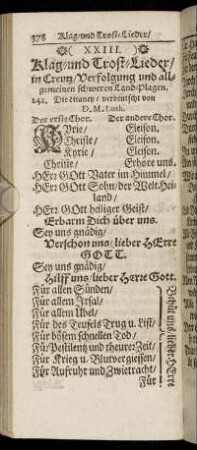 378 Klag-und Trost-Lieder/
( XXIII. )
Klag-und Trost-Lieder/
in Creutz/Verfolgung und all-
gemeinen schweren Land-Plagen.
242. Die Litaney/ verdeutscht von
D. M. Luth.
Der erste Chor. Der andere Chor.
KYrie/ Eleison.
Christe/ Eleison.
Kyrie/ Eleison.
Christe/ Erhöre uns.
HErr GOtt Vater im Himmel/
HErr GOtt Sohn/ der Welt Hei-
land/
HErr GOtt heiliger Geist/
Erbarm Dich über uns.
Sey uns gnädig/
Verschon uns/ lieber HErre
GOTT.
Sey uns gnädig/
Hilff uns/ lieber Herre Gott.
Für allen Sünden/
Für allem Irsal/
Für allem Ubel/
Für des Teufels Trug u. List/
Für bösem schnellen Tod/
Für Pestilentz und theurer Zeit/
Für Krieg u. Blutvergiessen/
Für Aufruhr und Zwietracht/
Behüt uns/ lieber HErre
Für